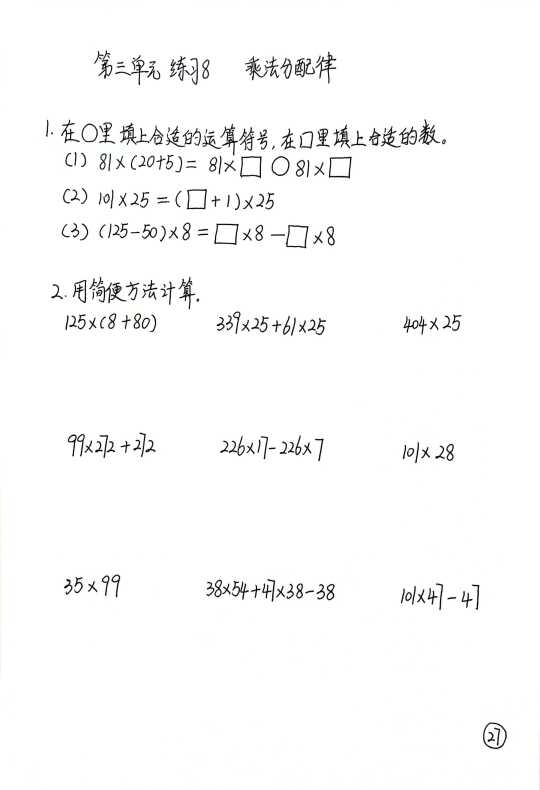 第三单元 练习8 乘法分配律
1. 在○里填上合适的运算符号,在□里填上合适的数。
(1) 81×(20+5)= 81×□ ○ 81×□
(2) 101×25=(□+1)×25
(3) (125-50)×8=□×8-□×8
2. 用简便方法计算.
125×(8+80) 339×25+61×25 404×25
99×272+272 226×17-226×7 101×28
35×99 38×54+47×38-38 101×47-47
27